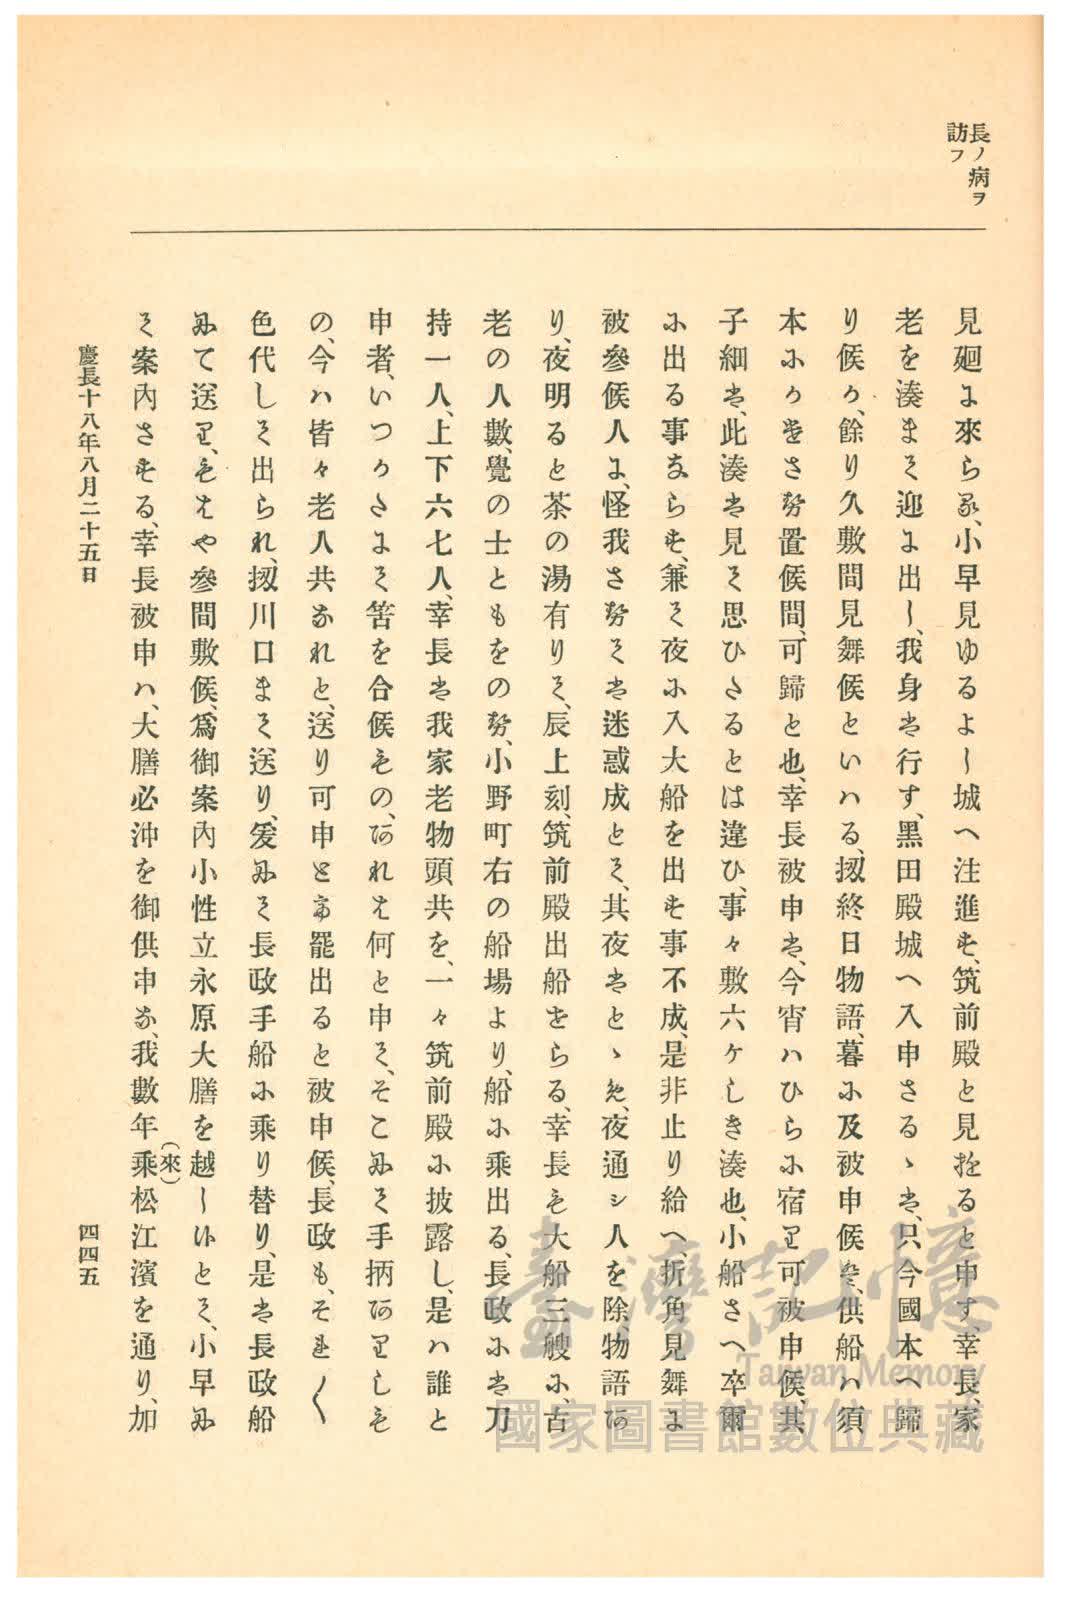 長ノ病ヲ
訪フ
見廻に來らる、小早見ゆるよし城へ注進す、筑前殿と見えたると申す、幸長、家
老を湊まて迎に出し、我身は行す、黑田殿城へ入申さるゝは、只今國本へ歸
り候か、餘り久敷間見舞候といハる、扨終日物語、暮に及被申候は、供船ハ須
本にかゝせ置候間、可歸と也、幸長被申は、今宵ハひらに宿り可被申候、其
子細は、此湊は見て思ひたるとは違ひ、事々敷六ケしき湊也、小船さへ卒爾
に出る事ならす、兼て夜に入大船を出す事不成、是非止り給へ、折角見舞に
被參候人に、怪我させては迷惑成とて、其夜はとゝめ、夜通シ人を除、物語あ
り、夜明ると茶の湯有りて、辰上刻、筑前殿出船せらる、幸長も大船三艘に、古
老の人數、覺の士ともをのせ、小野町右の船場より、船に乘出る、長政には刀
持一人、上下六七人、幸長は我家老物頭共を、一々筑前殿に披露し、是ハ誰と
申者、いつかたにて筈を合候もの、あれは何と申て、そこにて手柄ありしも
の、今ハ皆々老人共なれと、送り可申とて罷出ると被申候、長政も、それ〱
色代して出られ、扨川口まて送り、爰にて長政手船に乘り替り、是は長政船
にて送り、もはや參間敷候、爲御案內小性立永原大膳を越し候とて、小早に
て案內させる、幸長被申ハ、大膳必沖を御供申な、我數年乘松江濱を通り、加
(來)
慶長十八年八月二十五日
四四五
臺灣記憶
Taiwan Memory
國家圖書館數位典藏